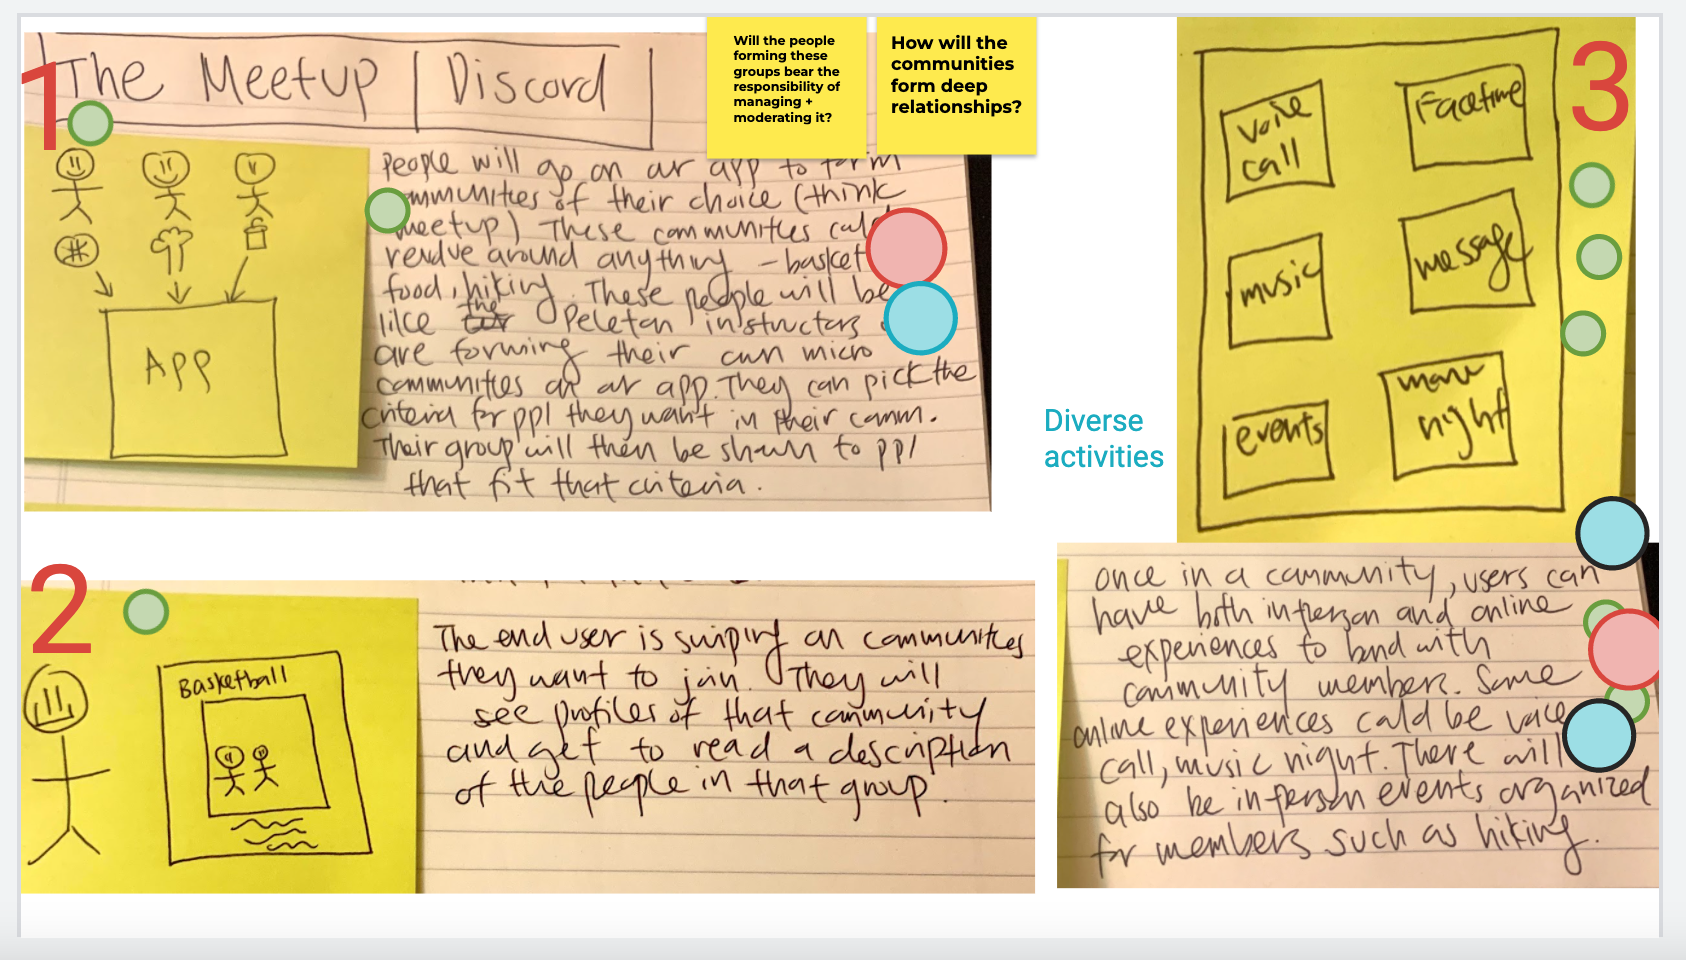 1
The Meetup | Discord
Will the people
forming these
groups bear the
responsibility of
managing +
moderating it?
How will the
communities
form deep
relationships?
APP
People will go on our app to form
communities of their choice (think
meetup) These communities
revolve around anything - basket
food, hiking. These people will be
like the Peleton instructors
are forming their own micro
communities on our app. They can pick the
criteria for ppl they want in their comm.
Their group will then be shown to ppl
that fit that criteria.
2
Basketball
The end user is swiping on communities
they want to join. They will
see profiles of that community
and get to read a description
of the people in that group.
3
voice
call
Facetime
music
message
events
movie
night
Diverse
activities
once in a community, users can
have both inperson and online
experiences to bond with
community members. Some
online experiences could be voice
call, music night. There will
also be inperson events organized
for members such as hiking.